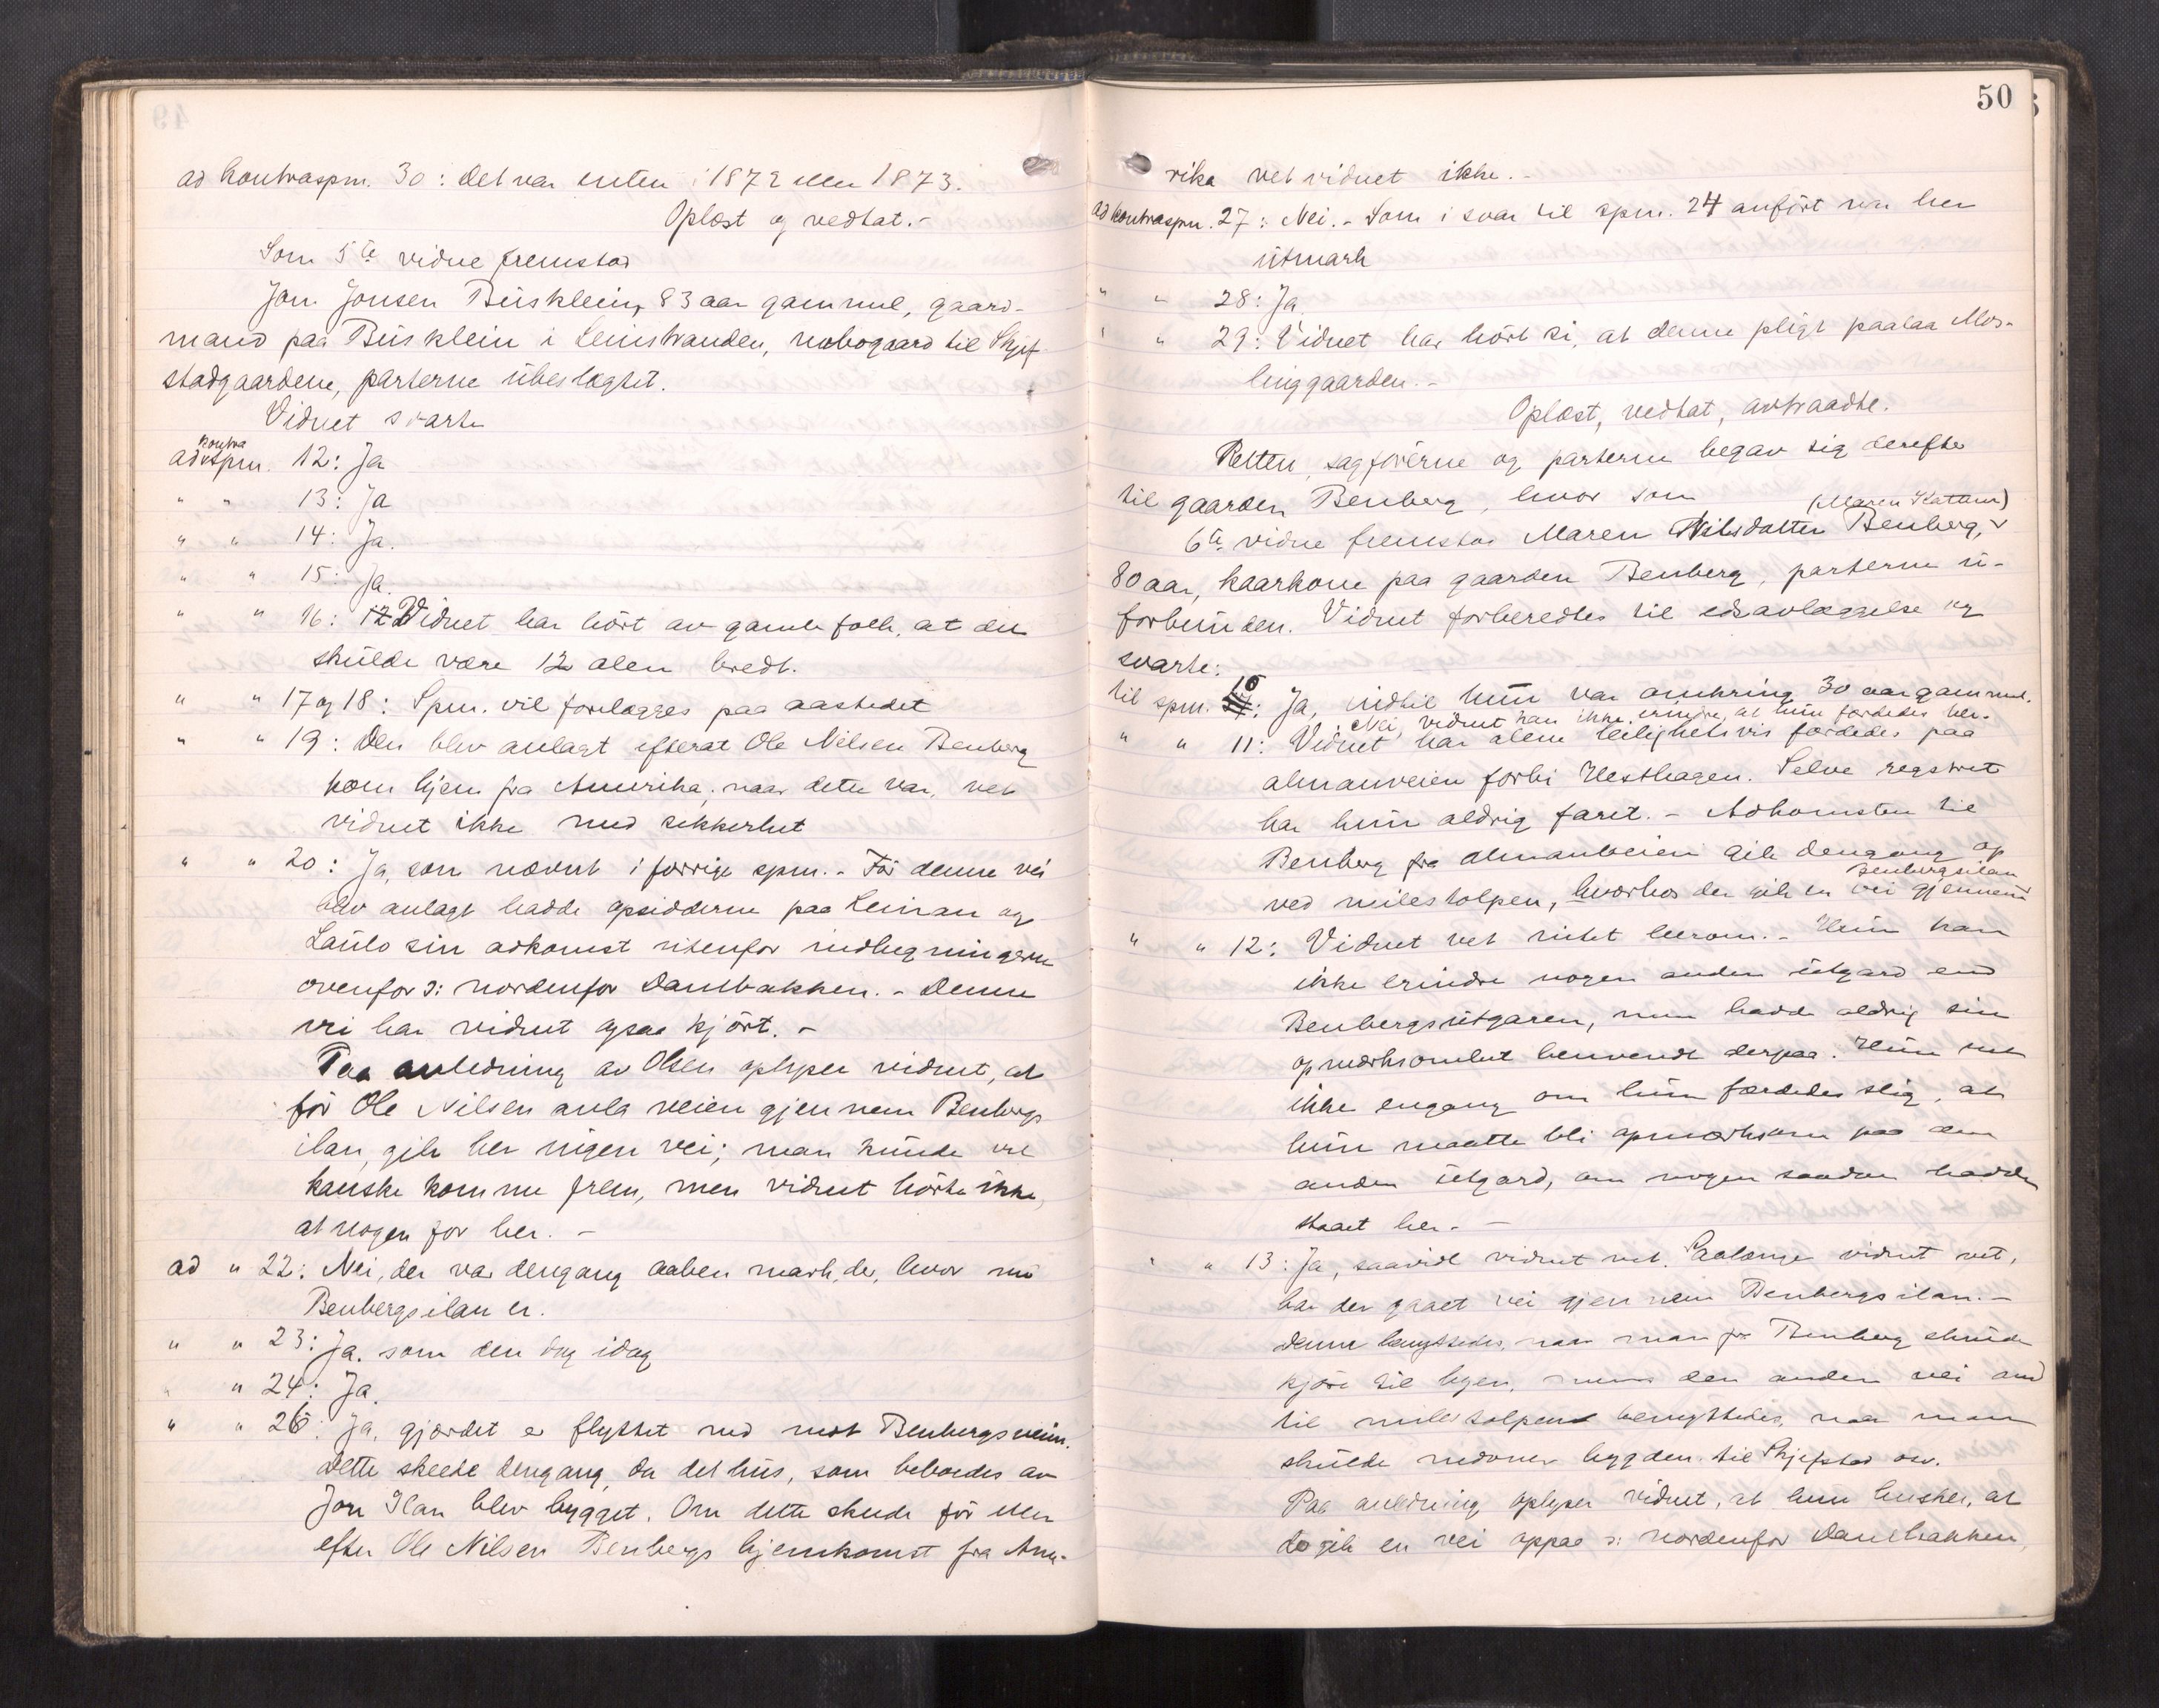 ad kontraspm. 30: Det var enten i 1872 eller 1873.
Oplæst og vedtat.-
Som 5te vidne fremstod
Jon Jonsen Busklein, 83 aar gammel, gaard-
mand paa Busklein i Leinstranden, nabogaard til Skjef-
stadgaardene, parterne ubeslægtet.
Vidnet svarte
ad kontraspm. 12: Ja
" " 13: Ja
" " 14: Ja.
" " 15: Ja.
" " 16: Vidnet har hört av gamle folk, at den
skulde være 12 alen bredt.
" " 17 og 18: Spm. vil forelægges paa aastedet
" " 19: Den blev anlagt efterat Ole Nilsen Benberg
kom hjem fra Amerika; naar dette var, vet
vidnet ikke med sikkerhet
" " 20: Ja, som nævnt i forrige spm. - Før denne vei
blev anlagt hadde opsidderne paa Leinan og
Laulo sin adkomst utenfor indhegningerne
ovenfor ɔ: nordenfor Danebakken. - Denne
vei har vidnet ogsaa kjört. -
Paa anledning av Olsen oplyser vidnet, at
för Ole Nilsen anla veien gjennem Benbergs
ilan, gik her ingen vei; man kunde vel
kanske komme frem, men vidnet hörte ikke,
at nogen for her. -
ad " 22: Nei, der var dengang aaben mark, der, hvor nu
Benbergsilan er.
" " 23: Ja. som den dag idag
" " 24: Ja.
" " 26: Ja, gjærdet er flyttet ned mot Benbergsveien.
Dette skeede dengang, da det hus, som beboedes av
Jon Ilan blev bygget. Om dette skeede för eller
efter Ole Nilsen Benbergs hjemkomst fra Ame-
50
rika vet vidnet ikke.-
ad kontraspm. 27: Nei. - Som i svar til spm. 24 anfört var her
utmark
" " 28: Ja.
" " 29: Vidnet har hört si, at denne pligt paalaa Mos-
linggaarden.-
Oplæst, vedtat, avtraadte.
Retten, sagförerne og parterne begav sig derefter
til gaarden Benberg, hvor som
(Maren Kattem)
6te vidne fremstod Maren Nilsdatter Benberg,
80 aar, kaarkone paa gaarden Benberg, parterne u-
forbunden. Vidnet forberedtes til edsavlæggelse og
svarte:
til spm. 10: Ja, indtil hun var omkring 30 aar gammel.
Nei, vidnet kan ikke erindre, at hun færdedes her.
" " 11: Vidnet har alene leilighetsvis færdedes paa
almanveien forbi Hesthagen. Selve
har hun aldrig faret. - Adkomsten til
Benberg fra almanveien gik dengang op
Benbergsilan
ved milestolpen, hvorhos der gik en vei gjennem
" " 12: Vidnet vet intet herom. - Hun kan
ikke erindre nogen anden utgard end
Benbergsutgaren, men hadde aldrig sin
opmerksomhet henvendt derpaa. Hun vet
ikke engang om hun færdedes slig, at
hun maatte bli opmerksom paa den
anden utgard, om nogen saadan hadde
staaet her. -
" " 13: Ja, saavidt vidnet vet. Saalænge vidnet vet,
har der gaaet vei gjennem Benbergsilan. -
Denne benyttedes, naar man fra Benberg skulde
kjöre til byen, mens den anden vei ned
til milestolpen benyttedes, naar man
skulde nedover bygden til Skjefstad osv.
Paa anledning oplyser vidnet, at hun husker, at
der gik en vei oppaa ɔ: nordenfor Danebakken,